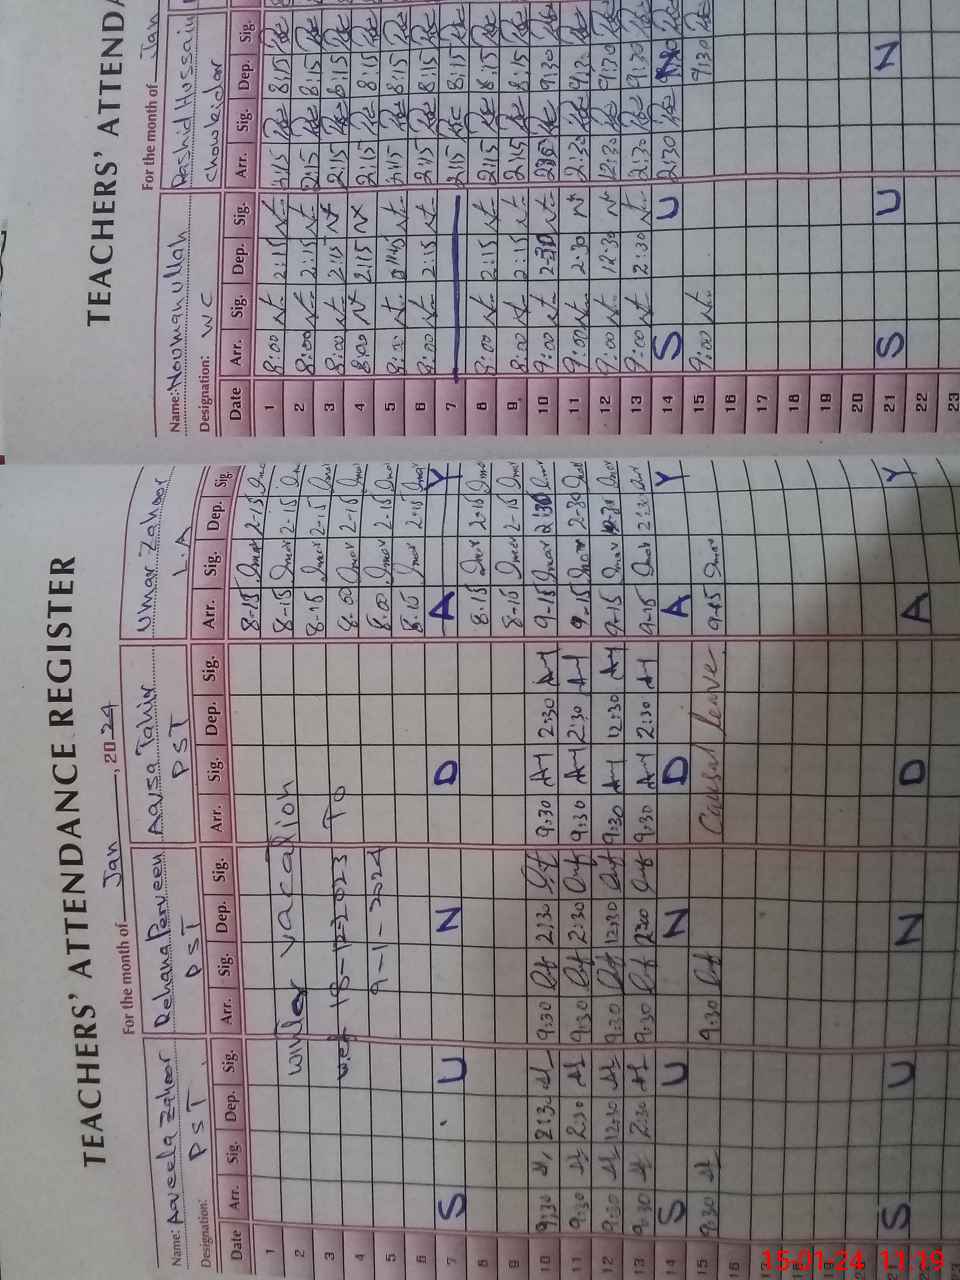 TEACHERS' ATTENDANCE REGISTER
For the month of Jan, 2024
Name: Aqeela Zahoor Rehana Perveen Aqsa Tahir Umar Zahoor
Designation: PST PST PST L.A
Date Arr. Sig. Dep. Sig. Arr. Sig. Dep. Sig. Arr. Sig. Dep. Sig. Arr. Sig. Dep. Sig.
1 8-15 2-15
2 winter vacation 8-15 2-15
3 w.e.f 18-12-2023 To 8-15 2-15
4 9-1-2024 8-00 2-15
5 8:00 2-15
6 8-15 2-15
7 S U N D A Y
8 8-15 2-15
9 8-15 2-15
10 9:30 2:30 9:30 2:30 9:30 2:30 9-15 2:30
11 9:30 2:30 9:30 2:30 9:30 2:30 9-15 2-30
12 9:30 12:30 9:30 12:30 9:30 12:30 9-15 12:30
13 9:30 2:30 9:30 2:30 9:30 2:30 9-15 2:30
14 S U N D A Y
15 9:30 9:30 Causal leave 9-15
16
17
18
19
20
21 S U N D A Y
22
23
TEACHERS' ATTENDA
For the month of Jan
Name: Noumanullah Rashid Hussain
Designation: WC chowkidar
Date Arr. Sig. Dep. Sig. Arr. Sig. Dep. Sig.
1 8:00 2:15 2:15 8:15
2 8:00 2:15 2:15 8:15
3 8:00 2:15 2:15 8:15
4 8:00 2:15 2:15 8:15
5 8:00 2:15 8:15
6 8:00 2:15 2:15 8:15
7 2:15 8:15
8 8:00 2:15 2:15 8:15
9 8:00 2:15 2:15 8:15
10 9:00 2:30 9:30
11 9:00 2:30 2:30 9:30
12 9:00 12:30 12:30 9:30
13 9:00 2:30 2:30 9:30
14 S U 2:30
15 9:00 9:30
16
17
18
19
20
21 S U N
22
23
15-01-24 11:19